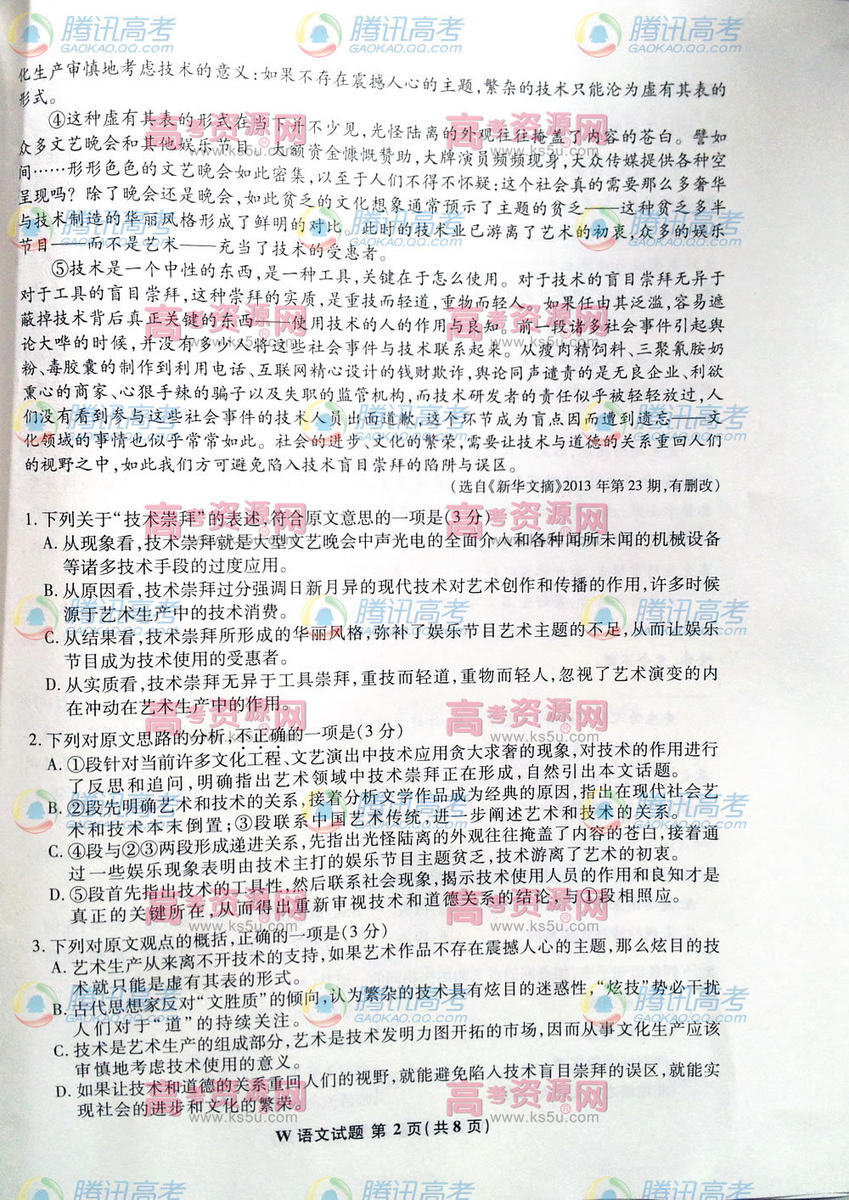 化生产审慎地考虑技术的意义:如果不存在震撼人心的主题,繁杂的技术只能沦为虚有其表的
形式。
④这种虚有其表的形式在当下并不少见,光怪陆离的外观往往掩盖了内容的苍白。譬如
众多文艺晚会和其他娱乐节目,大额资金慷慨赞助,大牌演员频频现身,大众传媒提供各种空
间……形形色色的文艺晚会如此密集,以至于人们不得不怀疑:这个社会真的需要那么多奢华
呈现吗?除了晚会还是晚会,如此贫乏的文化想象通常预示了主题的贫乏——这种贫乏多半
与技术制造的华丽风格形成了鲜明的对比。此时的技术业已游离了艺术的初衷,众多的娱乐
节目——而不是艺术——充当了技术的受惠者。
⑤技术是一个中性的东西,是一种工具,关键在于怎么使用。对于技术的盲目崇拜无异于
对于工具的盲目崇拜,这种崇拜的实质,是重技而轻道,重物而轻人。如果任由其泛滥,容易遮
蔽掉技术背后真正关键的东西——使用技术的人的作用与良知。前一段诸多社会事件引起舆
论大哗的时候,并没有多少人将这些社会事件与技术联系起来。从瘦肉精饲料、三聚氰胺奶
粉、毒胶囊的制作到利用电话、互联网精心设计的钱财欺诈,舆论同声谴责的是无良企业、利欲
熏心的商家、心狠手辣的骗子以及失职的监管机构,而技术研发者的责任似乎被轻轻放过,人
们没有看到参与这些社会事件的技术人员出面道歉,这个环节成为盲点因而遭到遗忘——文
化领域的事情也似乎常常如此。社会的进步、文化的繁荣,需要让技术与道德的关系重回人们
的视野之中,如此我们方可避免陷入技术盲目崇拜的陷阱与误区。
(选自《新华文摘》2013年第23期,有删改)
1.下列关于“技术崇拜”的表述,符合原文意思的一项是(3分)
A.从现象看,技术崇拜就是大型文艺晚会中声光电的全面介入和各种闻所未闻的机械设备
等诸多技术手段的过度应用。
B.从原因看,技术崇拜过分强调日新月异的现代技术对艺术创作和传播的作用,许多时候
源于艺术生产中的技术消费。
C.从结果看,技术崇拜所形成的华丽风格,弥补了娱乐节目艺术主题的不足,从而让娱乐
节目成为技术使用的受惠者。
D.从实质看,技术崇拜无异于工具崇拜,重技而轻道,重物而轻人,忽视了艺术演变的内
在冲动在艺术生产中的作用。
2.下列对原文思路的分析,不正确的一项是(3分)
A.①段针对当前许多文化工程、文艺演出中技术应用贪大求奢的现象,对技术的作用进行
了反思和追问,明确指出艺术领域中技术崇拜正在形成,自然引出本文话题。
B.②段先明确艺术和技术的关系,接着分析文学作品成为经典的原因,指出在现代社会艺
术和技术本末倒置;③段联系中国艺术传统,进一步阐述艺术和技术的关系。
C.④段与②③两段形成递进关系,先指出光怪陆离的外观往往掩盖了内容的苍白,接着通
过一些娱乐现象表明由技术主打的娱乐节目主题贫乏,技术游离了艺术的初衷。
D.⑤段首先指出技术的工具性,然后联系社会现象,揭示技术使用人员的作用和良知才是
真正的关键所在,从而得出重新审视技术和道德关系的结论,与①段相照应。
3.下列对原文观点的概括,正确的一项是(3分)
A.艺术生产从来离不开技术的支持,如果艺术作品不存在震撼人心的主题,那么炫目的技
术就只能是虚有其表的形式。
B.古代思想家反对“文胜质”的倾向,认为繁杂的技术具有炫目的迷惑性,“炫技”势必干扰
人们对于“道”的持续关注。
C.技术是艺术生产的组成部分,艺术是技术发明力图开拓的市场,因而从事文化生产应该
审慎地考虑技术使用的意义。
D.如果让技术和道德的关系重回人们的视野,就能避免陷入技术盲目崇拜的误区,就能实
现社会的进步和文化的繁荣。
W 语文试题 第2页(共8页)